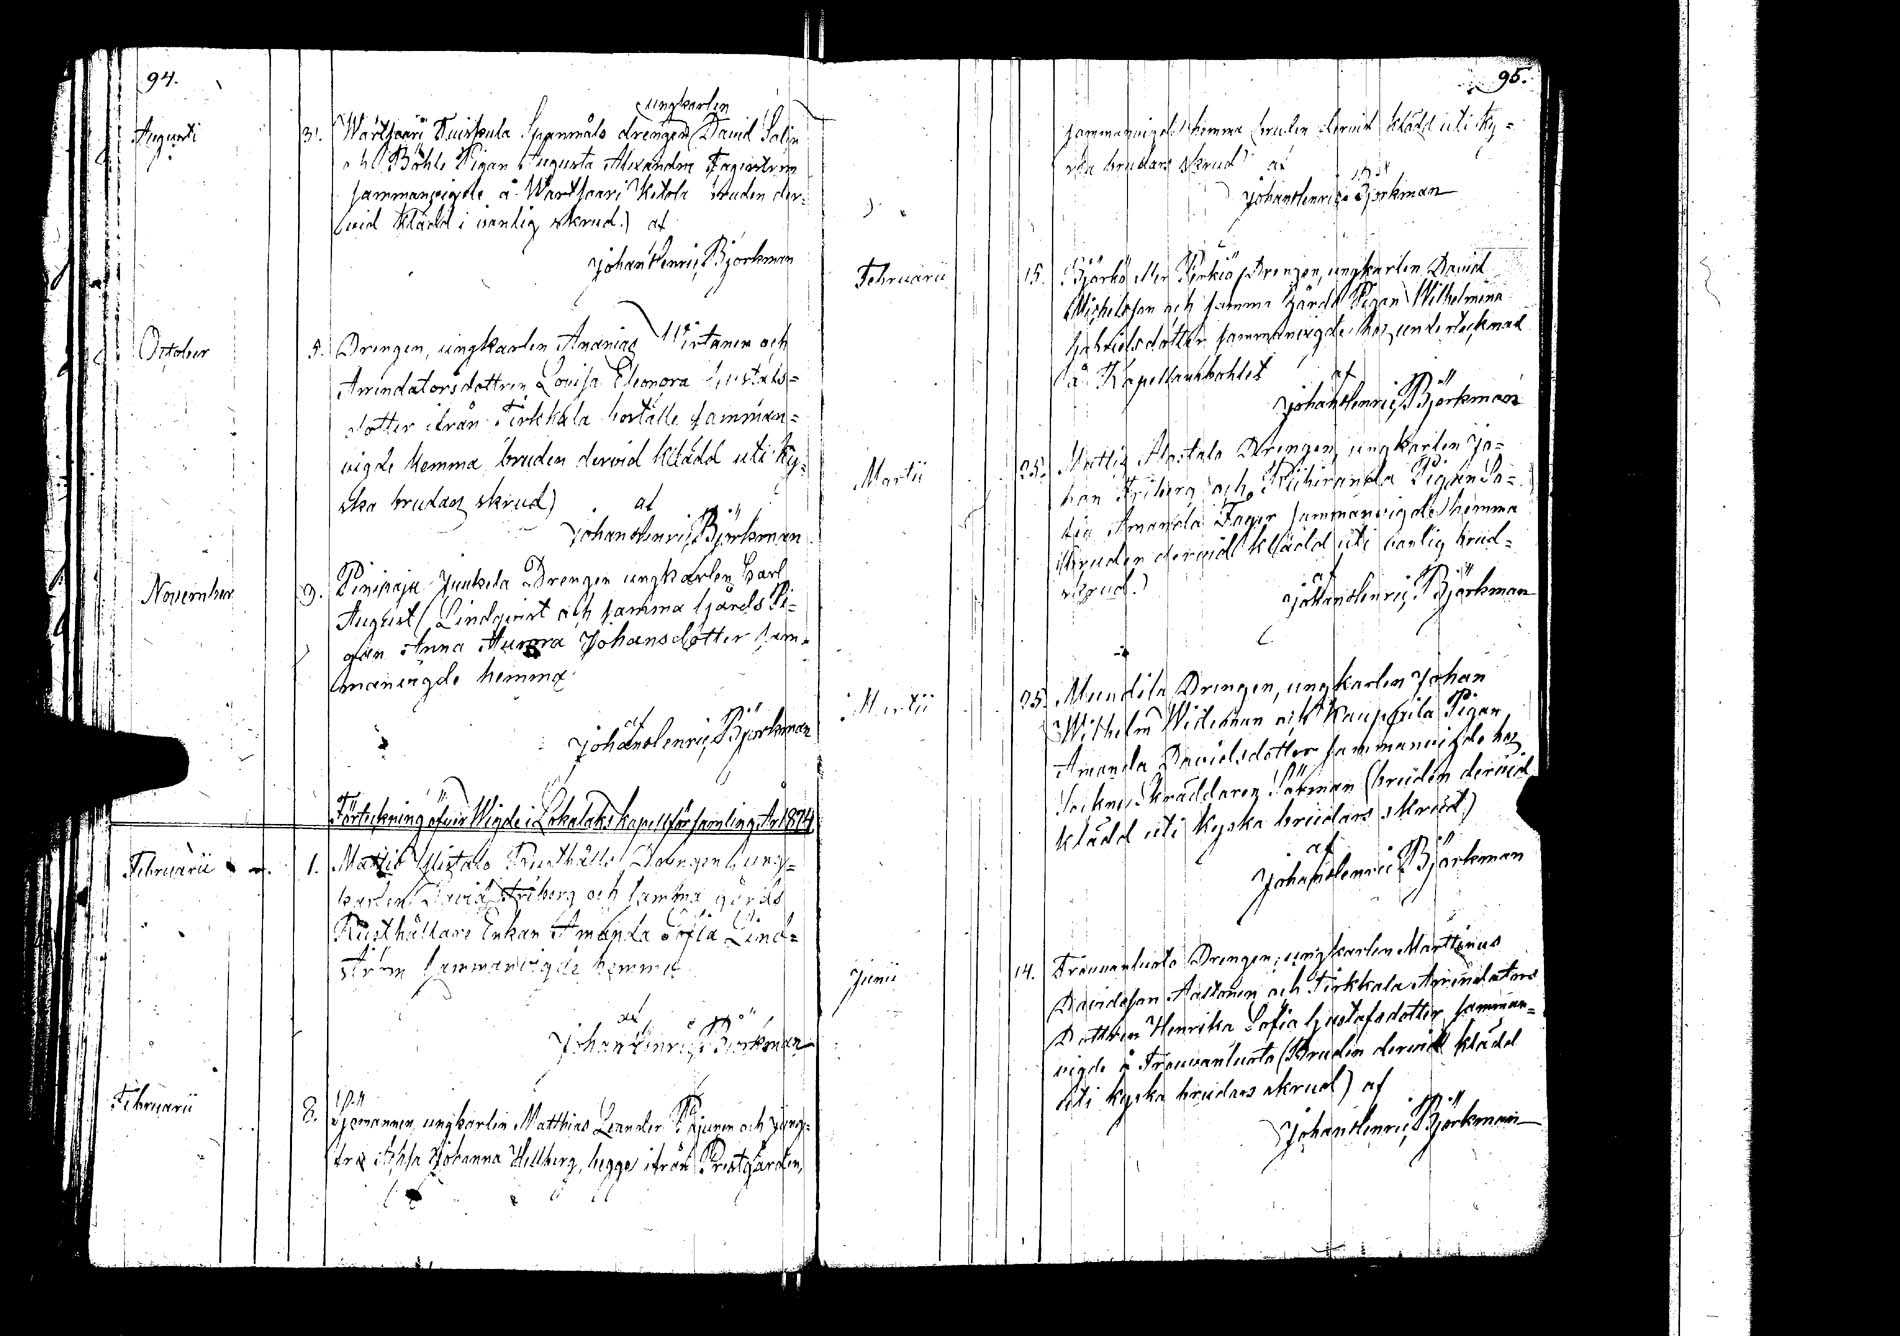 94.
ungkarlen
Augusti 31. Wartsaari Tuiskula Spanmåls drengen David Salin
och Böhle Pigan Augusta Alexandra Fagerström
sammanvigde å Wartsaari Ketola bruden der-
vid klädd i vanlig skrud.) af
Johan Henric Björkman
October 5. Drengen, ungkarlen Ananias Wirtanen och
Arrendatorsdottren Lovisa Eleonora Gustafs-
dotter ifrån Tirkkala boställe samman-
vigde hemma bruden dervid klädd uti ky-
ska brudars skrud) af
Johan Henric Björkman
November 9. Pinipaja Juukela Drengen ungkarlen Carl
August Lindqvist och samma Gårds Pi-
gan Anna Aurora Johansdotter sam-
manvigde hemma
af
Johan Henric Björkman
Förteckning öfver Wigde i Lokalaks kapellförsamling År 1874
Februarii 1. Mattis Rusthålls Drengen, ung-
karlen David Friberg och samma gårds
Rusthållare Enkan Amanda Sofia Lind-
ström sammanvigde hemma
af
Johan Henric Björkman
Februarii 8. Sjömannen ungkarlen Matthias Leander Pajunen och jung-
fru Johanna Hellberg, begge ifrån Prestgården,
95.
sammanvigde hemma bruden dervid klädd uti ky-
ska brudars skrud af
Johan Henric Björkman
Februarii 15. Björkö eller Pirkiö Drengen, ungkarlen David
Michelsson och samma Gårds Pigan Wilhelmina
Gabrielsdotter sammanvigde hos undertecknad
å Kapellansbohlet af
Johan Henric Björkman
Martii 25. Mattis Alastalo Drengen, ungkarlen Jo-
han Friberg och Riihiranda Pigan So-
fia Amanda Fager sammanvigde hemma
(bruden dervid klädd uti vanlig brud-
skrud.) af
Johan Henric Björkman
Martii 25. Mundila Drengen, ungkarlen Johan
Wilhelm Wideman och Kauppila Pigan
Amanda Davidsdotter sammanvigde hos
Sockne Skräddaren Sökman (bruden dervid
klädd uti kyska brudars skrud)
af
Johan Henric Björkman
Junii 14. Frouvanlusto Drengen, ungkarlen Marttinus
Davidsson Aaltonen och Tirkkala Arrendators
Dottren Henrika Sofia Gustafsdotter samman-
vigde å Frouvanlusto (Bruden dervid klädd
uti kyska brudars skrud) af
Johan Henric Björkman